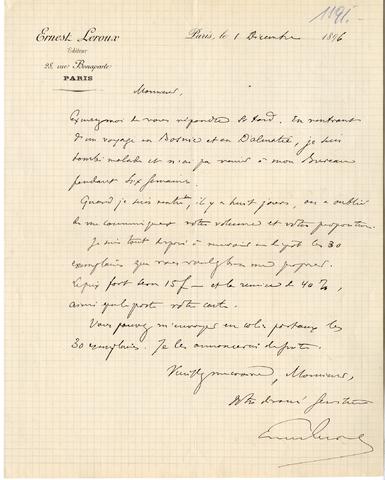 1191.
Ernest Leroux
Editeur
28, rue Bonaparte
PARIS
Paris, le 1 Décembre 1896
Monsieur,
Excusez moi de vous répondre si tard. En rentrant
d'un voyage en Bosnie et en Dalmatie, je suis
tombé malade et n'ai pu venir à mon Bureau
pendant six semaines.
Quand je suis rentré, il y a huit jours, on a oublié
de me communiquer votre volume et votre proposition.
Je suis tout disposé à mettre en dépôt les 30
exemplaires que vous voulez bien me proposer.
Le prix fort sera 15 f — et la remise de 40 %,
ainsi que le porte votre carte.
Vous pouvez m'envoyer en colis postaux les
30 exemplaires. Je les annoncerai de suite.
Veuillez me croire, Monsieur,
Votre dévoué serviteur
Ernest Leroux